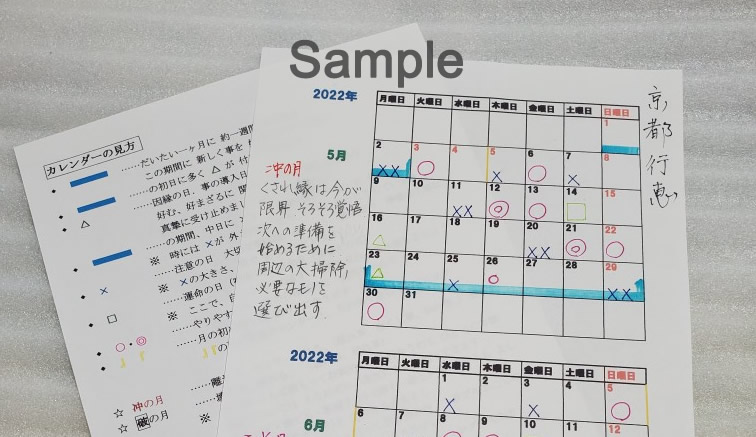 Sample
カレンダーの見方
……だいたい一ヶ月に 約一週間
この期間に 新しく事を
の初日に多く △ が 付
……因縁の日、事の導入日
好む、好まざるに
真摯に受け止めま
……の期間、中日に
※ 時には ×が 外
……注意の日
※ ×の大きさ、
……運命の日
※ ここで、
……やりやす
……月の初
☆ 冲の月
☆ 破の月
※
京都行恵
2022年
月曜日 火曜日 水曜日 木曜日 金曜日 土曜日 日曜日
1
5月
2 3 4 5 6 7 8
9 10 11 12 13 14 15
16 17 18 19 20 21 22
23 24 25 26 27 28 29
30 31
冲の月
くされ縁は今が
限界 そろそろ覚悟
次への準備を
始めるために
周辺の大掃除、
必要なモノを
選び出す
2022年
月曜日 火曜日 水曜日 木曜日 金曜日 土曜日 日曜日
1 2 3 4 5
6月
6 7 8 9 10 11 12